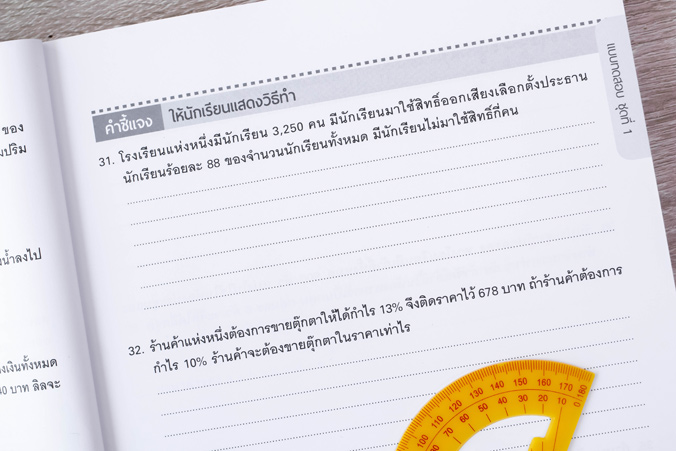 ของ
น้ำลงไป
เงินทั้งหมด
บาท ลิลจะ
คำชี้แจง ให้นักเรียนแสดงวิธีทำ
31. โรงเรียนแห่งหนึ่งมีนักเรียน 3,250 คน มีนักเรียนมาใช้สิทธิ์ออกเสียงเลือกตั้งประธาน
นักเรียนร้อยละ 88 ของจำนวนนักเรียนทั้งหมด มีนักเรียนไม่มาใช้สิทธิ์กี่คน
32. ร้านค้าแห่งหนึ่งต้องการขายตุ๊กตาให้ได้กำไร 13% จึงติดราคาไว้ 678 บาท ถ้าร้านค้าต้องการ
กำไร 10% ร้านค้าจะต้องขายตุ๊กตาในราคาเท่าไร
แบบทดสอบ ชุดที่ 1
100 110 120 130 140 150 160 170 180
70 60 50 40 30 20 10 0